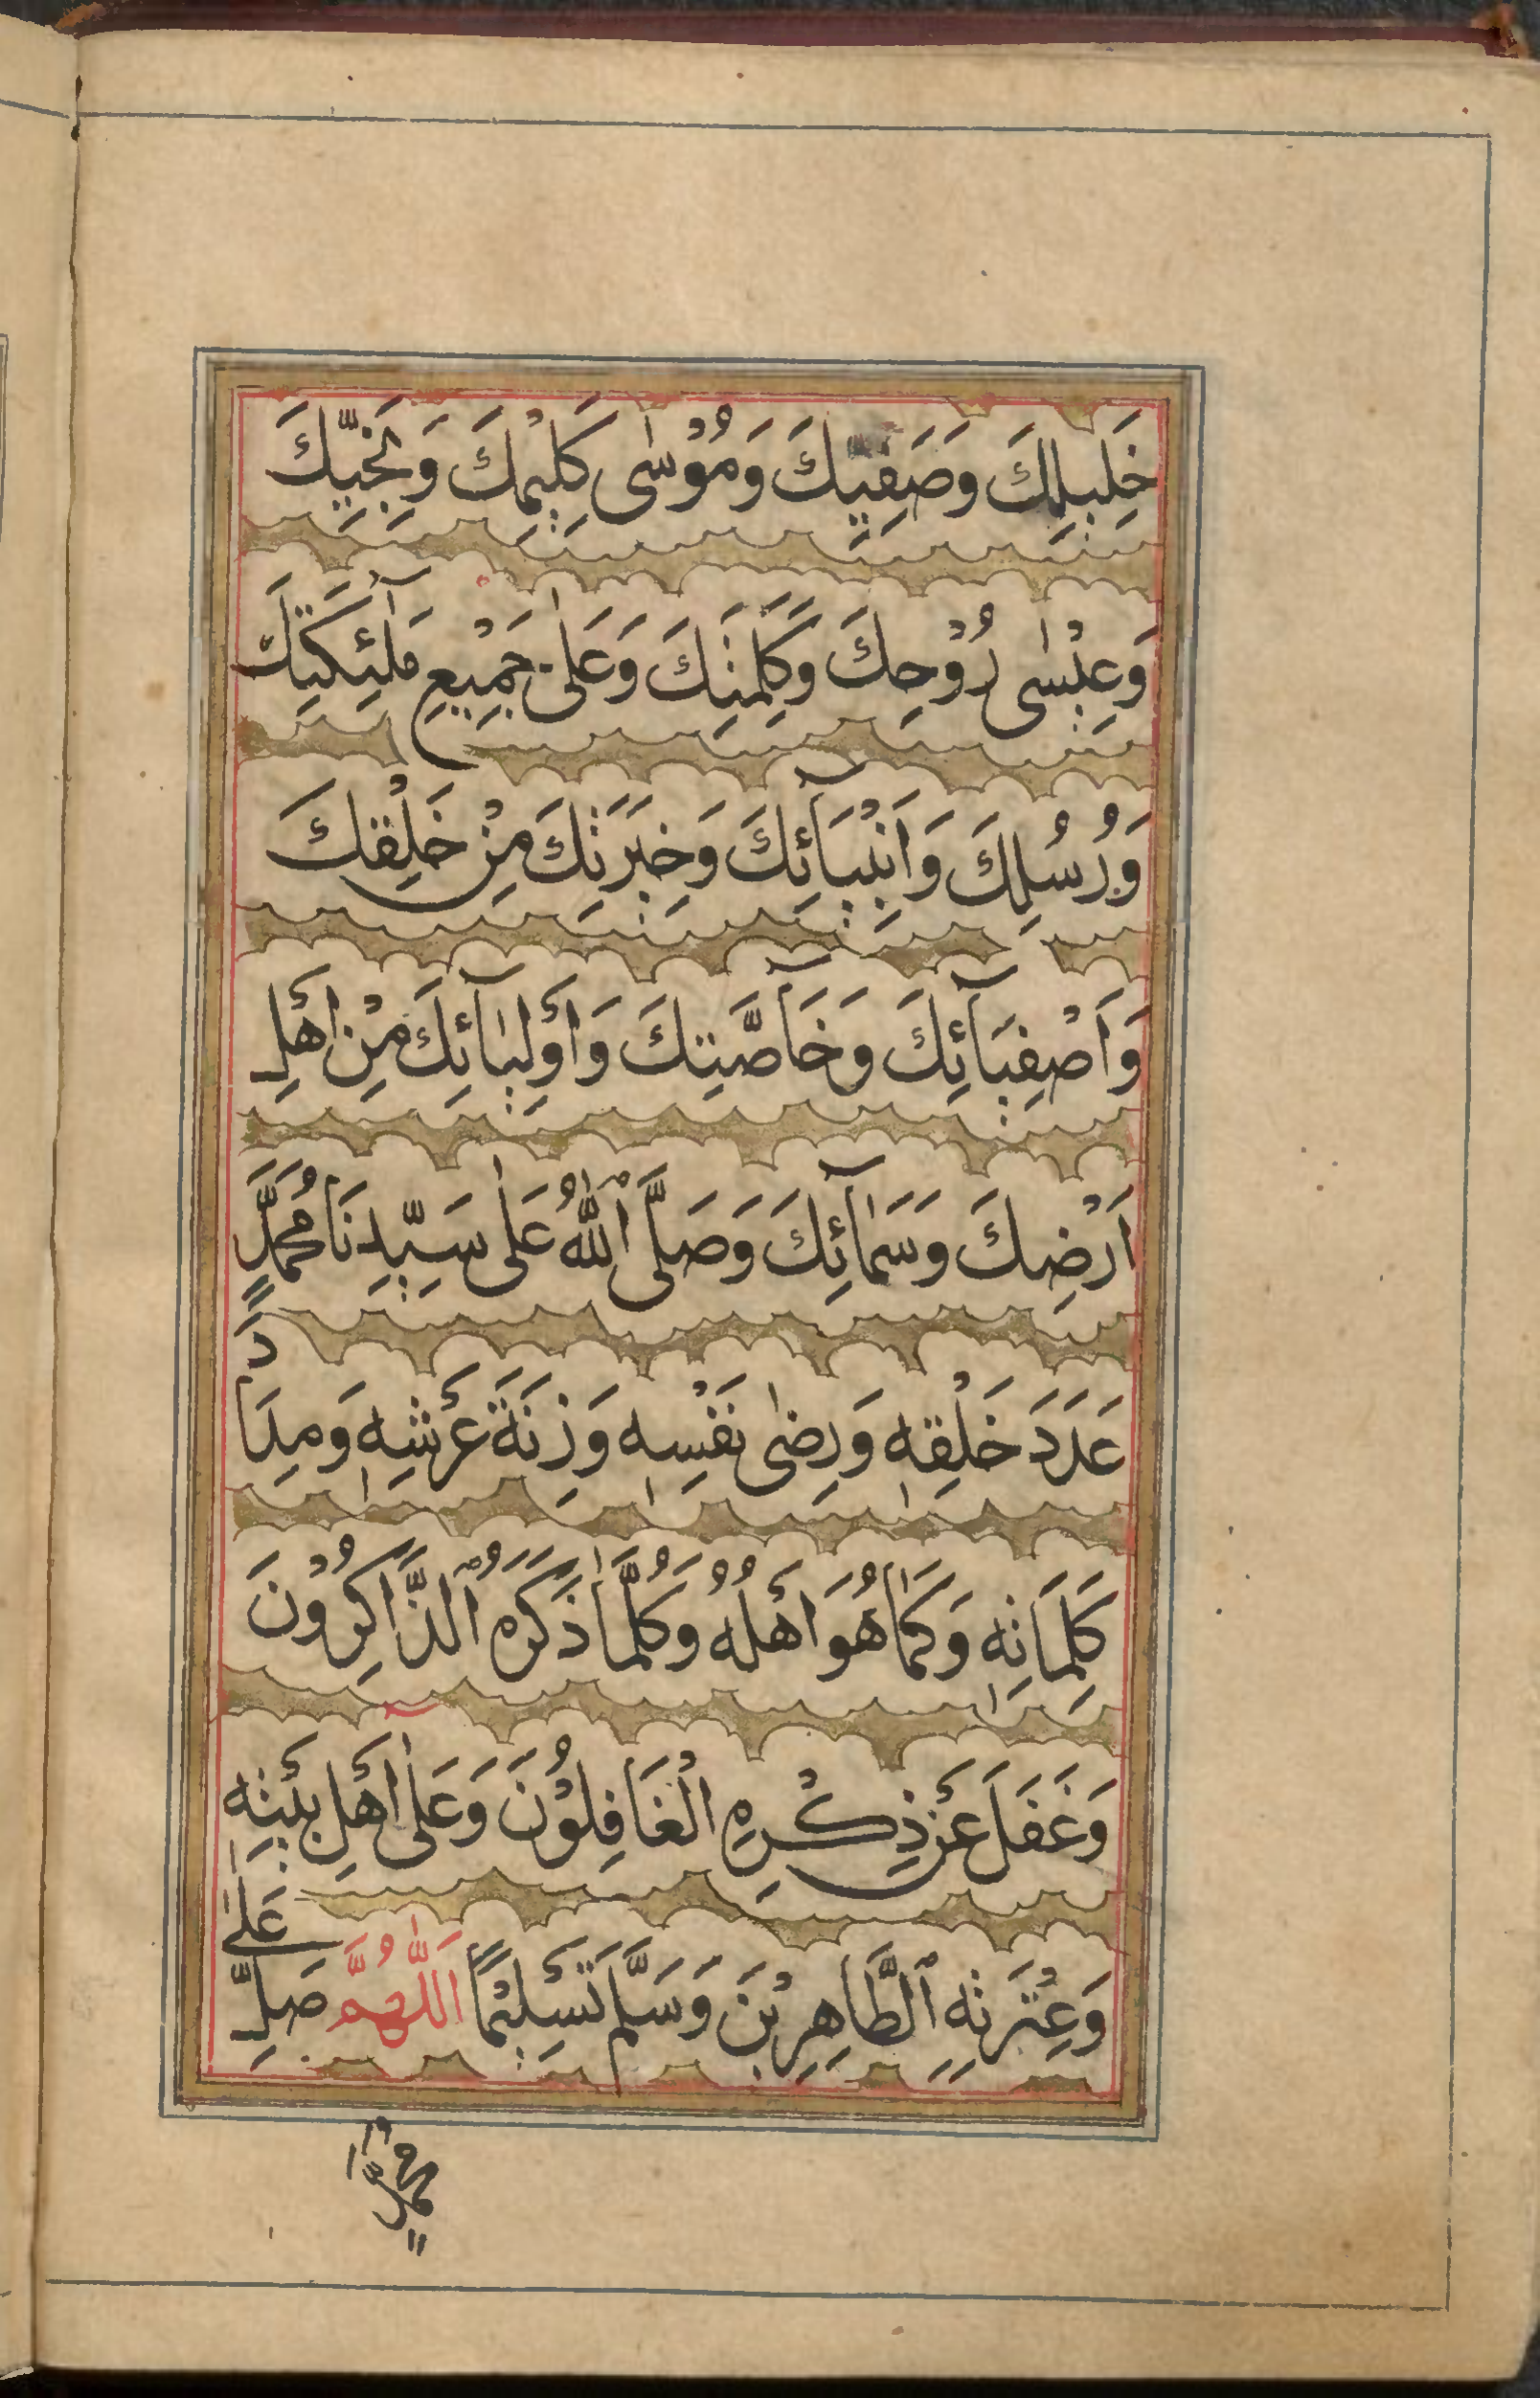 خَلِيلِكَ وَصَفِيِّكَ وَمُوْسٰى كَلِيْمِكَ وَنَجِيِّكَ
وَعِيْسٰى رُوْحِكَ وَكَلِمَتِكَ وَعَلٰى جَمِيْعِ مَلٰٓئِكَتِكَ
وَرُسُلِكَ وَاَنْبِيَآئِكَ وَخِيَرَتِكَ مِنْ خَلْقِكَ
وَاَصْفِيَآئِكَ وَخَآصَّتِكَ وَاَوْلِيَآئِكَ مِنْ اَهْلِ
اَرْضِكَ وَسَمَآئِكَ وَصَلَّى ٱللّٰهُ عَلٰى سَيِّدِنَا مُحَمَّدٍ
عَدَدَ خَلْقِهٖ وَرِضٰى نَفْسِهٖ وَزِنَةَ عَرْشِهٖ وَمِدَادَ
كَلِمَاتِهٖ وَكَمَا هُوَ اَهْلُهُ وَكُلَّمَا ذَكَرَهُ ٱلذَّاكِرُوْنَ
وَغَفَلَ عَنْ ذِكْرِهِ الْغَافِلُوْنَ وَعَلٰى اَهْلِ بَيْتِهٖ
وَعِتْرَتِهِ ٱلطَّاهِرِيْنَ وَسَلَّمَ تَسْلِيْمًا اَللّٰهُمَّ صَلِّ عَلٰى
مُحَمَّدٍ